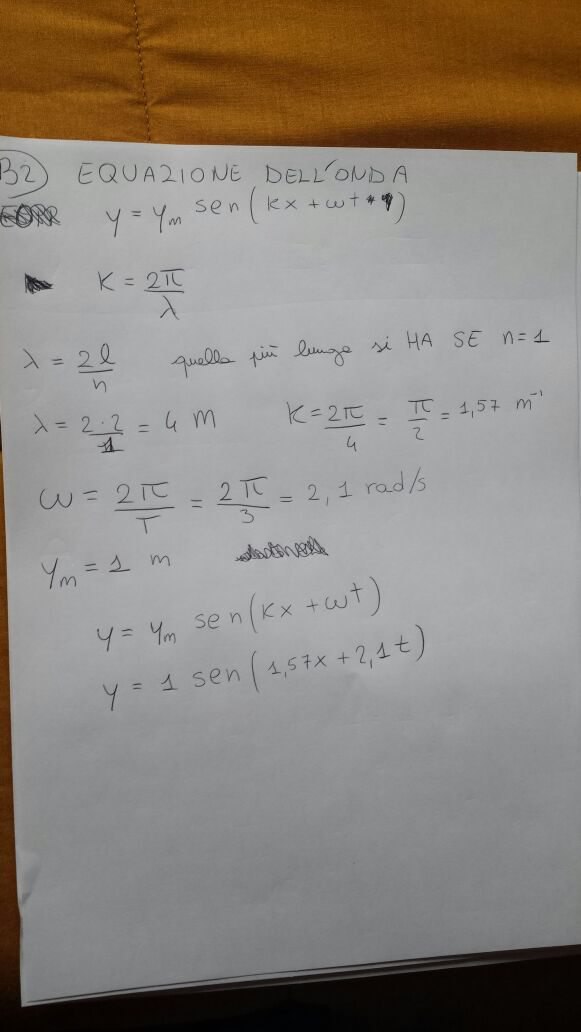 B2) EQUAZIONE DELL'ONDA
y = ym sen(kx + ωt)
K = 2π/λ
λ = 2l/n quella più lunga si HA SE n = 1
λ = 2·2/1 = 4 m K = 2π/4 = π/2 = 1,57 m⁻¹
ω = 2π/T = 2π/3 = 2,1 rad/s
ym = 1 m
y = ym sen(kx + ωt)
y = 1 sen(1,57x + 2,1t)